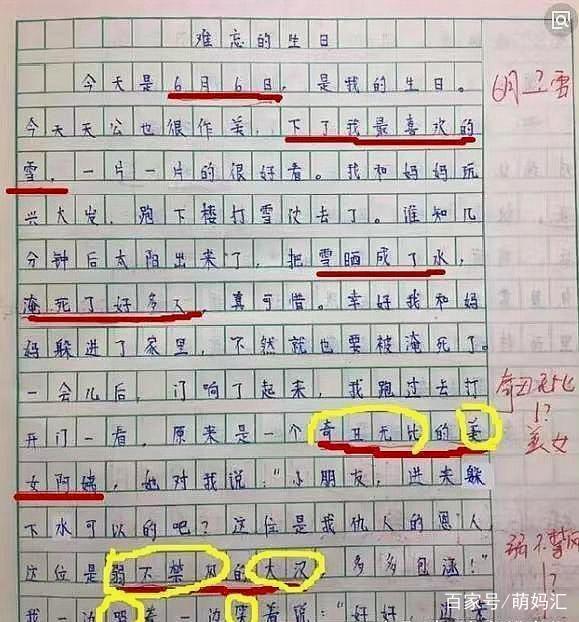 难忘的生日
今天是6月6日，是我的生日。
6月？雪
今天天公也很作美，下了我最喜欢的
雪，一片一片的很好看。我和妈妈玩
兴大发，跑下楼打雪仗去了。谁知几
分钟后太阳出来了，把雪晒成了水，
淹死了好多人，真可惜。幸好我和妈
妈躲进了家里，不然就也要被淹死了。
一会儿后，门响了起来，我跑过去打
奇丑无比
!?
美女
开门一看，原来是一个奇丑无比的美
女阿姨，她对我说："小朋友，进来躲
下水可以的吧？这位是我仇人的恩人
这位是弱不禁风的大汉，多多包涵！"
弱不禁风
!?
我一边哭着一边笑着说："好好，
百家号/萌妈汇